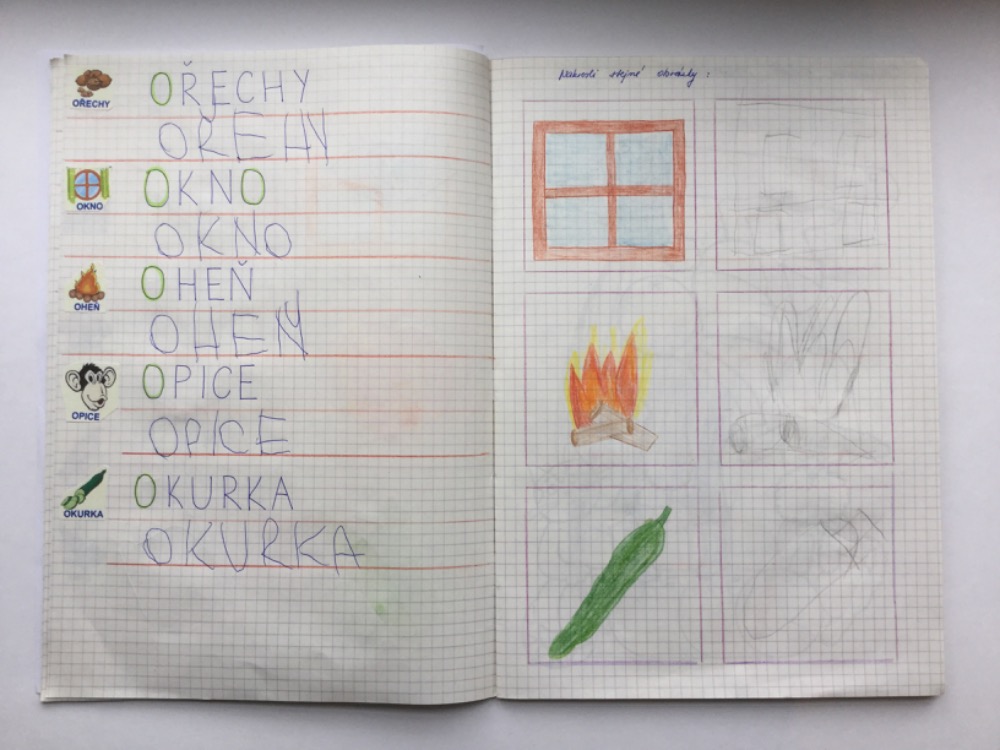 OŘECHY
OŘECHY
OŘEHY
OKNO
OKNO
OKNO
OHEŇ
OHEŇ
OHEŇ
OPICE
OPICE
OPICE
OKURKA
OKURKA
OKURKA
Nakresli stejné obrázky :